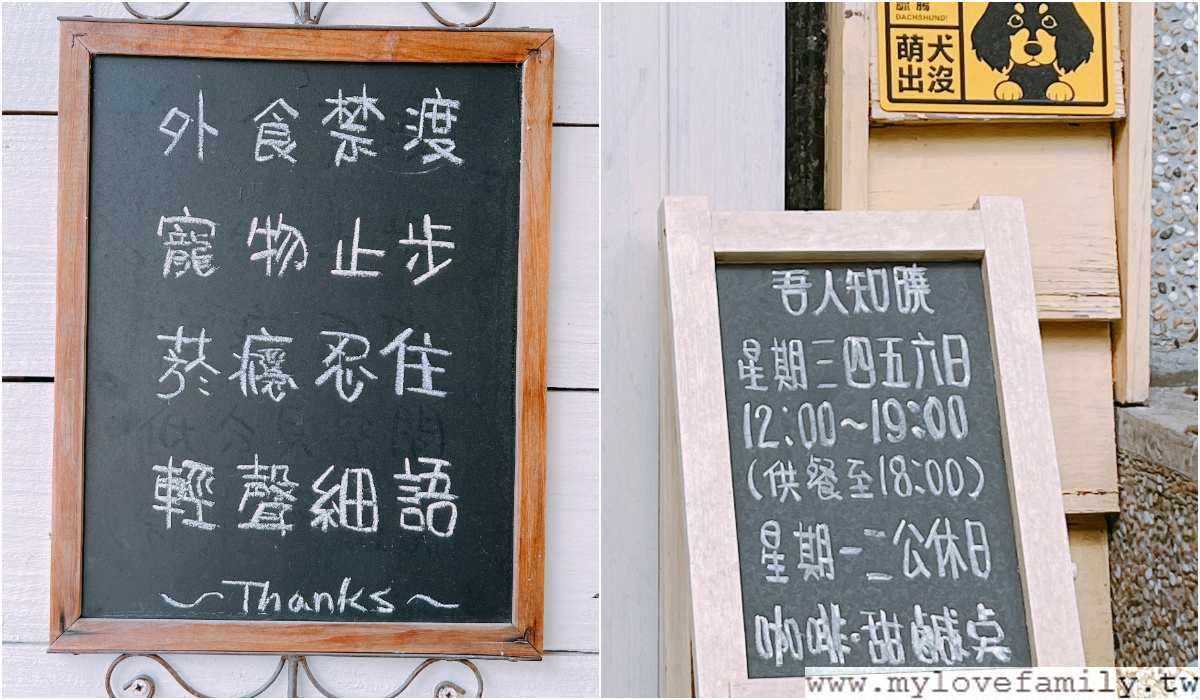 外食禁渡
寵物止步
菸癮忍住
輕聲細語
~Thanks~
DACHSHUND!
萌犬
出沒
吾人知曉
星期三四五六日
12:00~19:00
(供餐至18:00)
星期一二公休日
咖啡·甜鹹点
www.mylovefamily.tw